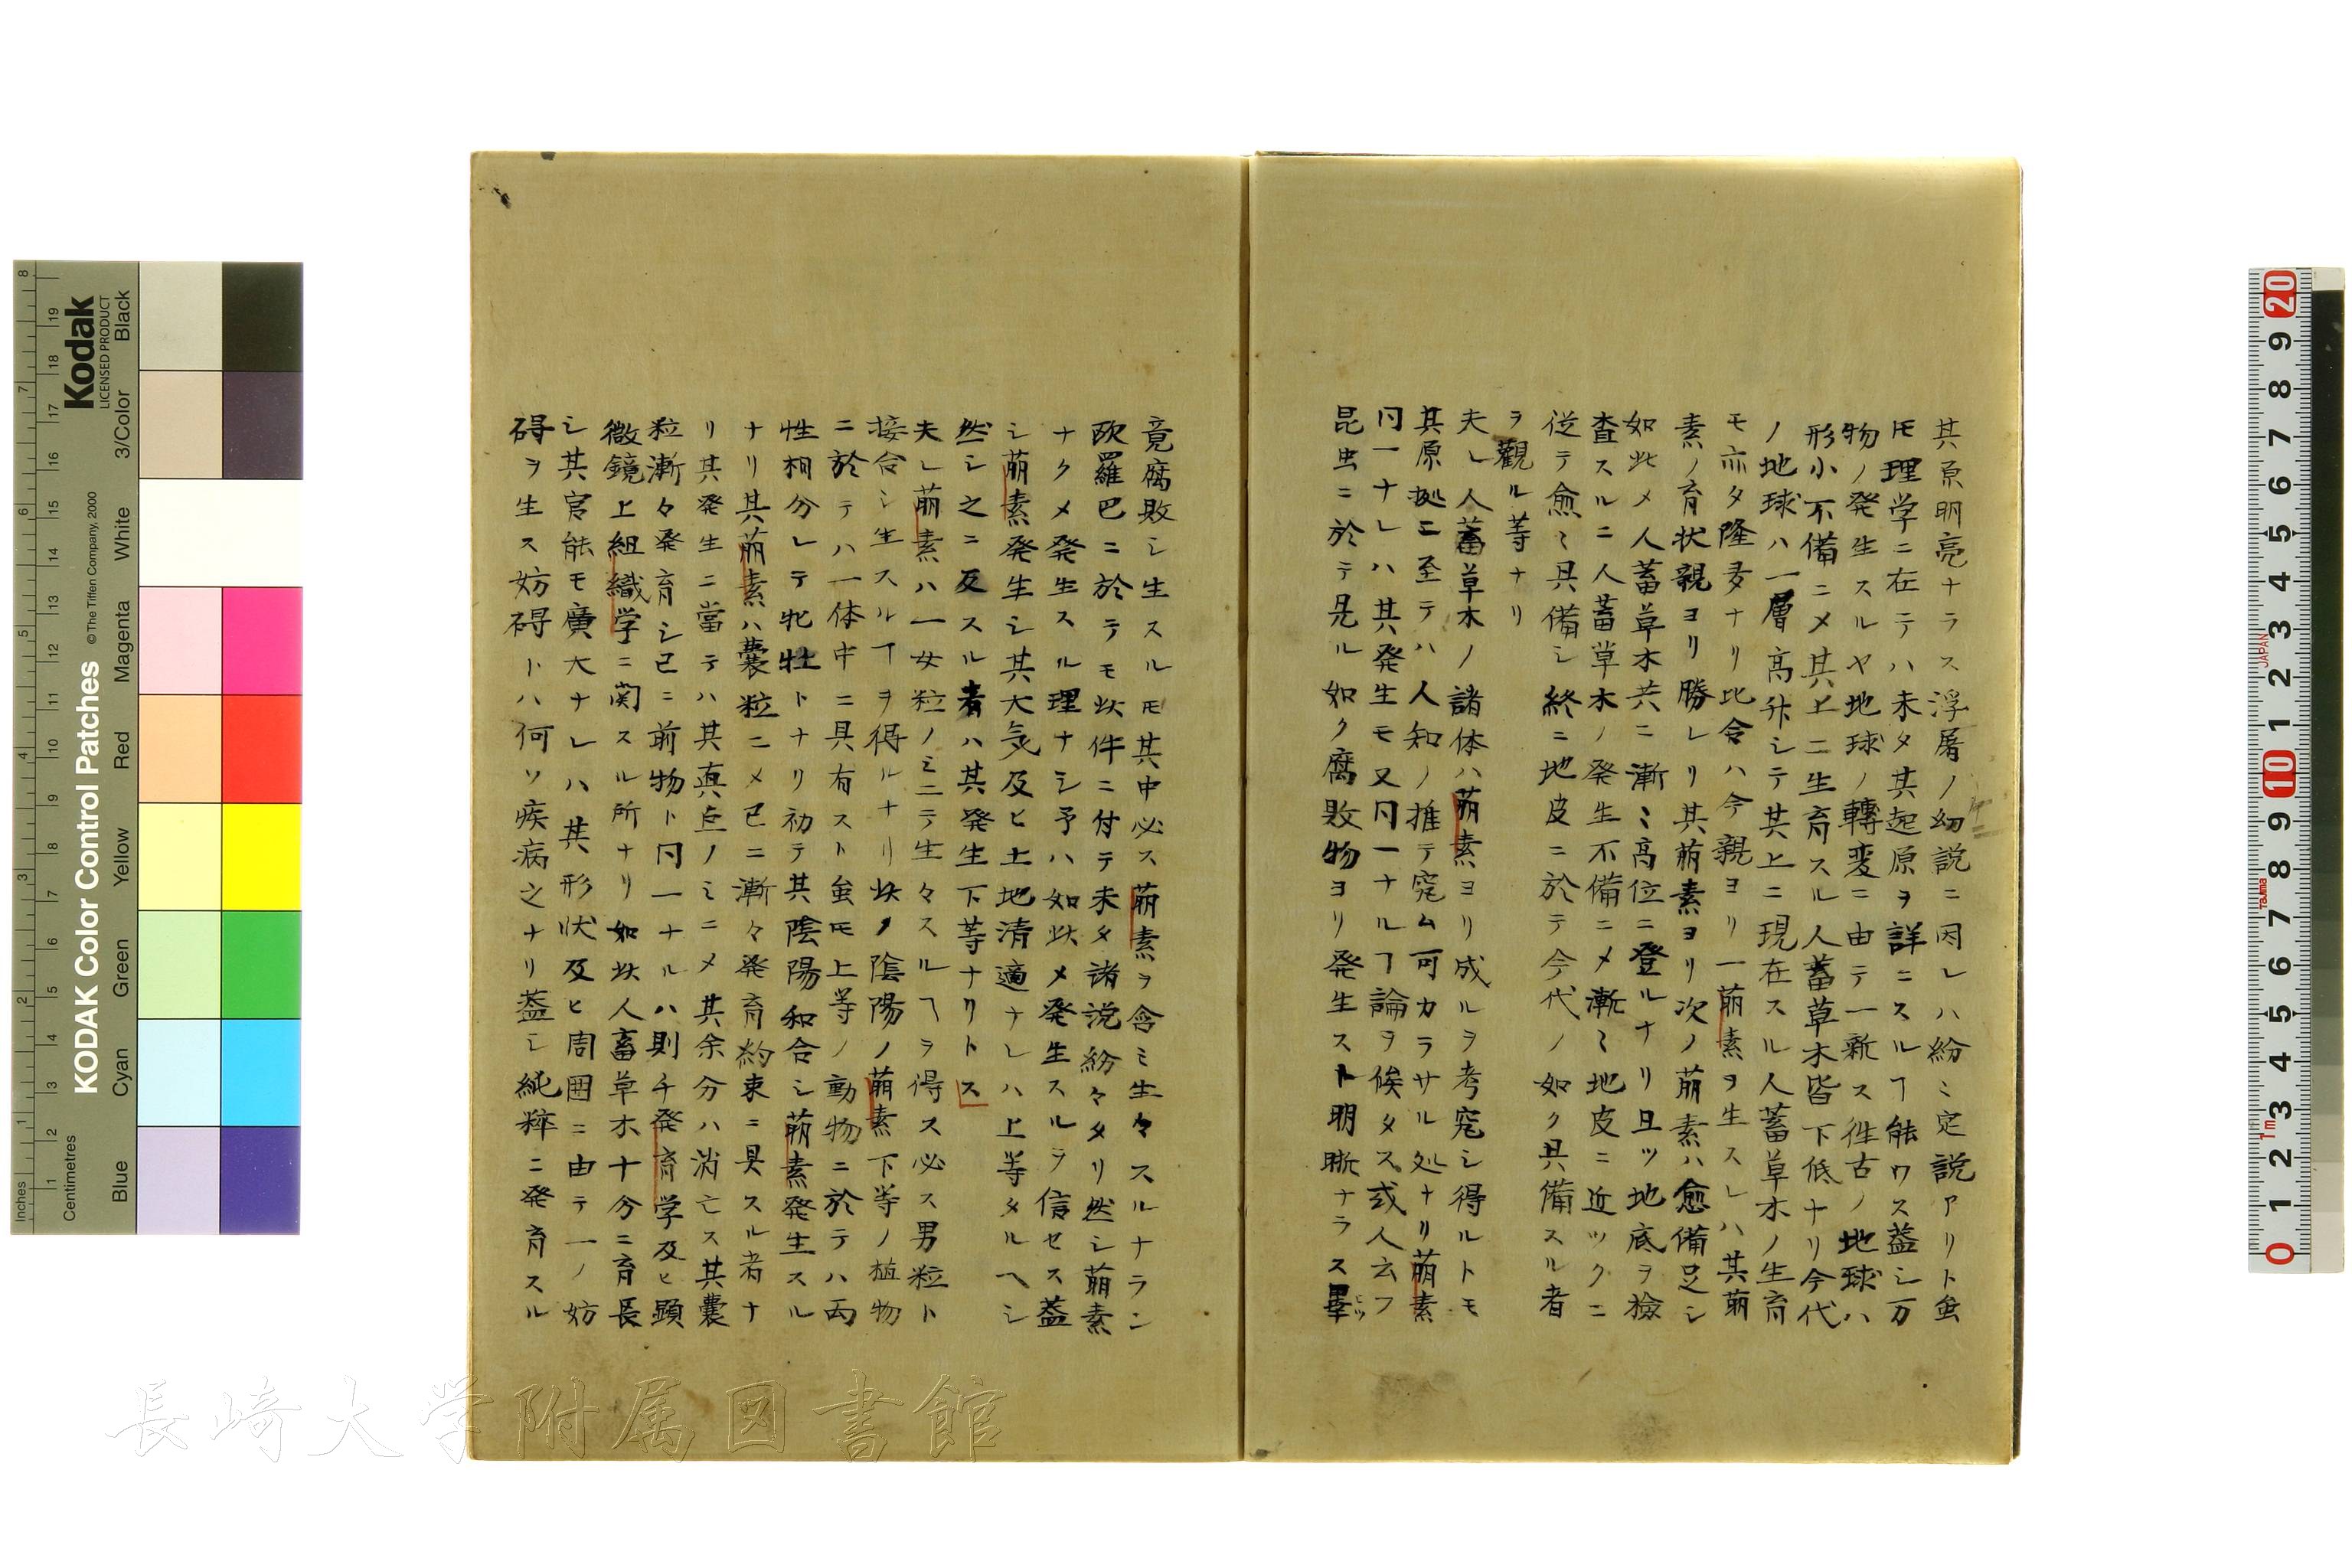 其原明亮ナラス浮屠ノ幼説ニ因レハ紛ミ定説アリト虽
𪜈理学ニ在テハ未タ其起原ヲ詳ニスルヿ能ワス蓋シ万
物ノ発生スルヤ地球ノ轉変ニ由テ一新ス徃古ノ地球ハ
形小不備ニメ其上ニ生育スル人蓄草木皆下低ナリ今代
ノ地球ハ一層高升シテ其上ニ現在スル人蓄草木ノ生育
モ亦タ隆ナリ比令ハ今親ヨリ一萠素ヲ生スレハ其萠
素ノ育状親ヨリ勝レリ其萠素ヨリ次ノ萠素ハ愈備足シ
如此メ人蓄草木共ニ漸ミ高位ニ登ルナリ且ツ地底ヲ檢
査スルニ人蓄草木ノ発生不備ニメ漸ミ地皮ニ近ツクニ
従テ愈ミ具備シ終ニ地皮ニ於テ今代ノ如ク具備スル者
ヲ觀ル等ナリ
夫レ人蓄草木ノ諸体ハ萠素ヨリ成ルヲ考究シ得ルトモ
其原拠ニ至テハ人知ノ推テ究ム可カラサル処ナリ萠素
冋一ナレハ其発生モ又冋一ナルヿ論ヲ俟タス或人云フ
昆虫ニ於テ見ル如ク腐敗物ヨリ発生スト明晣ナラス畢ヒツ
竟腐敗シ生スル𪜈其中必ス萠素ヲ含ミ生々スルナラン
欧羅巴ニ於テモ此件ニ付テ未タ諸説紛々タリ然シ萠素
ナクメ発生スル理ナシ予ハ如此メ発生スルヲ信セス蓋
シ萠素発生シ其大気及ヒ土地清適ナレハ上等タルヘシ
然シ之ニ反スル者ハ其発生下等ナリトス
夫レ萠素ハ一女粒ノミニテ生々スルヿヲ得ス必ス男粒ト
接合シ生スルヿヲ得ルナリ此ノ陰陽ノ萠素下等ノ植物
ニ於テハ一体中ニ具有スト虽𪜈上等ノ動物ニ於テハ両
性相分レテ牝牡トナリ初テ其陰陽和合シ萠素発生スル
ナリ其萠素ハ嚢粒ニメ已ニ漸々発育約束ニ具スル者ナ
リ其発生ニ當テハ其真ノミニメ其余分ハ消亡ス其嚢
粒漸々発育シ已ニ前物ト冋一ナルハ則チ発育学及ヒ顕
微鏡上組織学ニ関スル所ナリ如此人畜草木十分ニ育長
シ其官能モ廣大ナレハ其形状及ヒ周囲ニ由テ一ノ妨
碍ヲ生ス妨碍トハ何ソ疾病之ナリ蓋シ純粹ニ発育スル
KODAK Color Control Patches
© The Tiffen Company, 2000
Kodak
LICENSED PRODUCT
Inches
Centimetres
Blue
Cyan
Green
Yellow
Red
Magenta
White
3/Color
Black
JAPAN
長崎大学附属図書館